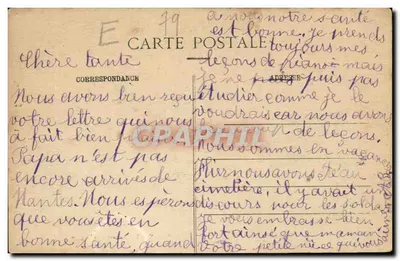 E
79
CARTE POSTALE
CORRESPONDANCE
ADRESSE
Chère tante
Nous avons bien reçu
votre lettre qui nous
à fait bien plaisir
Papa n'est pas
encore arrivés de
Nantes. Nous espèrons
que vous êtes en
bonne santé, quand
à nous notre santé
est bonne. je prends
toujours mes
leçons de piano mais
je ne puis pas
étudier comme je le
voudrais car nous avons
de leçons.
Nous sommes en vacances
Hier nous avons été au
cimetière, il y avait un
discours pour les soldats
je vous embrasse bien
fort ainsi que maman
votre petite nièce qui vous
CPARAMA